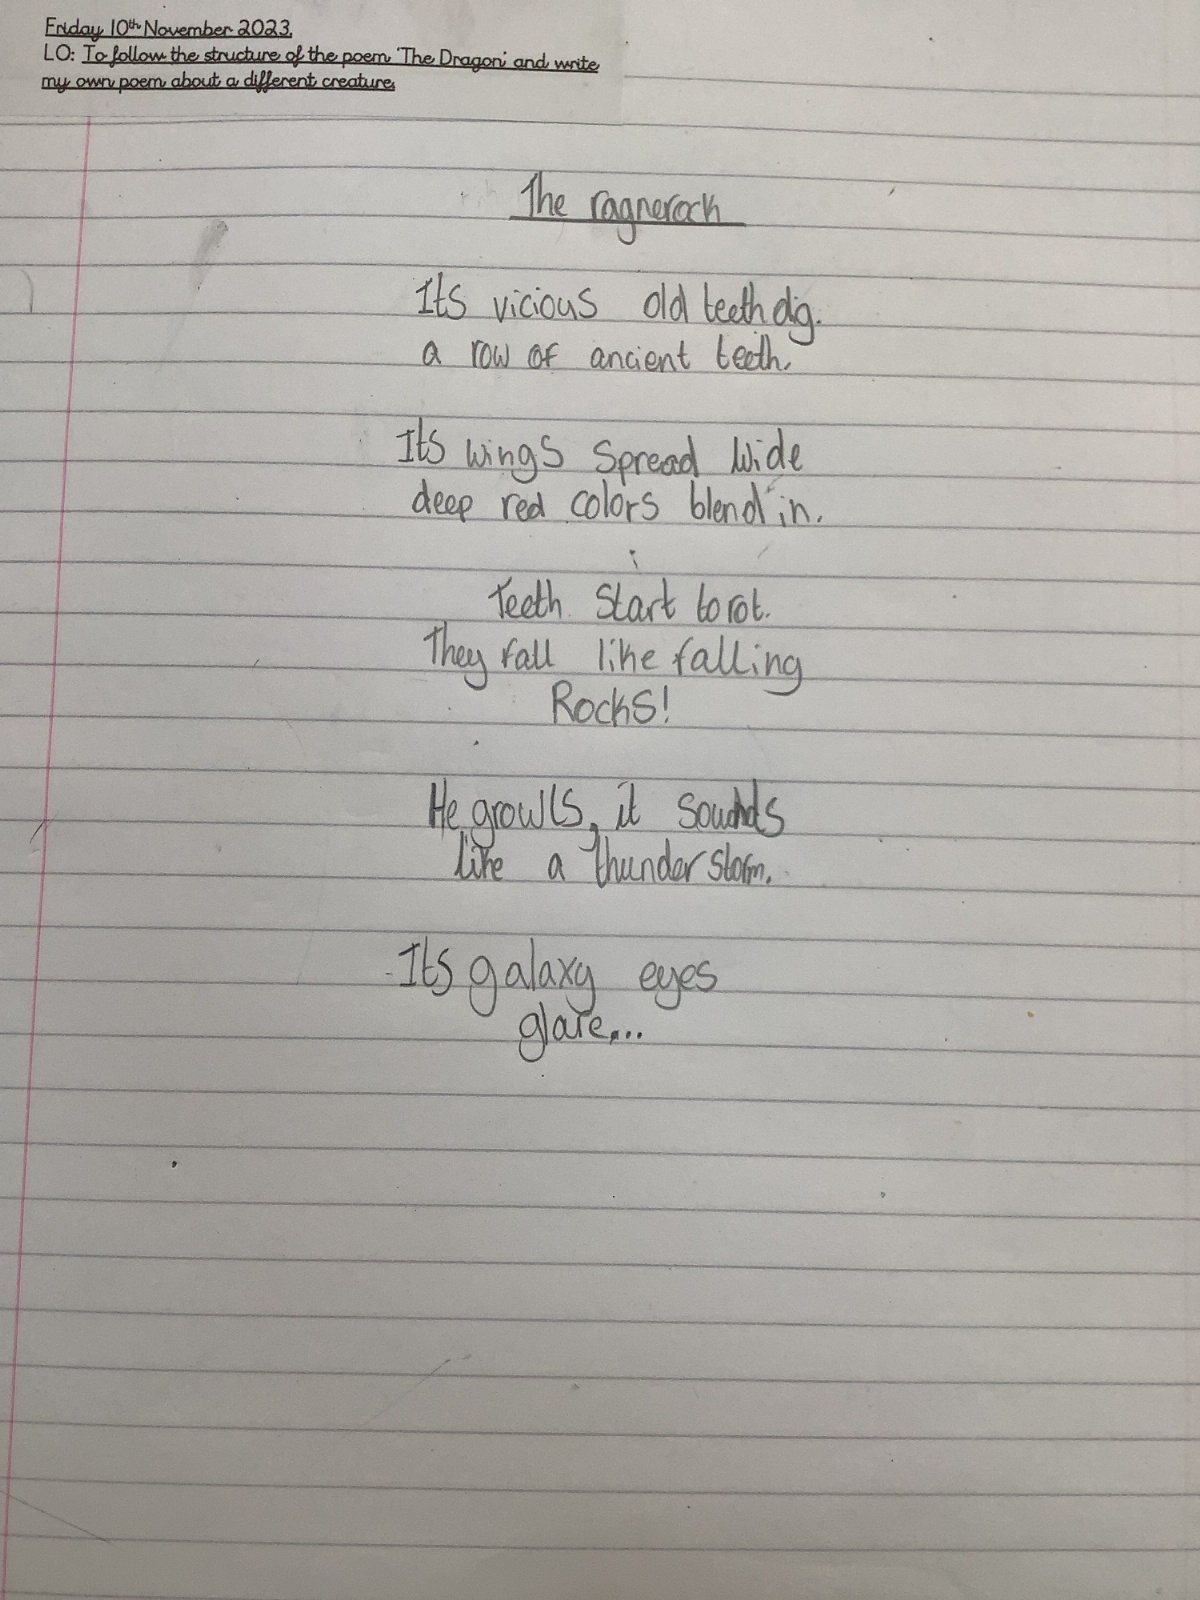 Friday 10th November 2023.
LO: To follow the structure of the poem 'The Dragon' and write
my own poem about a different creature.
The ragnerock
Its vicious old teeth dig.
a row of ancient teeth.
Its wings spread wide
deep red colors blend in.
Teeth start to rot.
They fall like falling
Rocks!
He growls, it sounds
like a thunder storm.
Its galaxy eyes
glare...